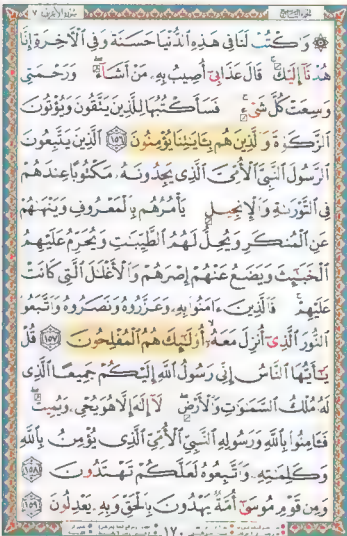 سورة الأعراف ٧ الجزء التاسع
۞ وَٱكْتُبْ لَنَا فِى هَـٰذِهِ ٱلدُّنْيَا حَسَنَةً وَفِى ٱلْـَٔاخِرَةِ إِنَّا
هُدْنَآ إِلَيْكَ ۚ قَالَ عَذَابِىٓ أُصِيبُ بِهِۦ مَنْ أَشَآءُ ۖ وَرَحْمَتِى
وَسِعَتْ كُلَّ شَىْءٍ ۚ فَسَأَكْتُبُهَا لِلَّذِينَ يَتَّقُونَ وَيُؤْتُونَ
ٱلزَّكَوٰةَ وَٱلَّذِينَ هُم بِـَٔايَـٰتِنَا يُؤْمِنُونَ ١٥٦ ٱلَّذِينَ يَتَّبِعُونَ
ٱلرَّسُولَ ٱلنَّبِىَّ ٱلْأُمِّىَّ ٱلَّذِى يَجِدُونَهُۥ مَكْتُوبًا عِندَهُمْ
فِى ٱلتَّوْرَىٰةِ وَٱلْإِنجِيلِ يَأْمُرُهُم بِٱلْمَعْرُوفِ وَيَنْهَىٰهُمْ
عَنِ ٱلْمُنكَرِ وَيُحِلُّ لَهُمُ ٱلطَّيِّبَـٰتِ وَيُحَرِّمُ عَلَيْهِمُ
ٱلْخَبَـٰٓئِثَ وَيَضَعُ عَنْهُمْ إِصْرَهُمْ وَٱلْأَغْلَـٰلَ ٱلَّتِى كَانَتْ
عَلَيْهِمْ ۚ فَٱلَّذِينَ ءَامَنُوا۟ بِهِۦ وَعَزَّرُوهُ وَنَصَرُوهُ وَٱتَّبَعُوا۟
ٱلنُّورَ ٱلَّذِىٓ أُنزِلَ مَعَهُۥٓ ۙ أُو۟لَـٰٓئِكَ هُمُ ٱلْمُفْلِحُونَ ١٥٧ قُلْ
يَـٰٓأَيُّهَا ٱلنَّاسُ إِنِّى رَسُولُ ٱللَّهِ إِلَيْكُمْ جَمِيعًا ٱلَّذِى
لَهُۥ مُلْكُ ٱلسَّمَـٰوَٰتِ وَٱلْأَرْضِ ۖ لَآ إِلَـٰهَ إِلَّا هُوَ يُحْىِۦ وَيُمِيتُ ۖ
فَـَٔامِنُوا۟ بِٱللَّهِ وَرَسُولِهِ ٱلنَّبِىِّ ٱلْأُمِّىِّ ٱلَّذِى يُؤْمِنُ بِٱللَّهِ
وَكَلِمَـٰتِهِۦ وَٱتَّبِعُوهُ لَعَلَّكُمْ تَهْتَدُونَ ١٥٨
وَمِن قَوْمِ مُوسَىٰٓ أُمَّةٌ يَهْدُونَ بِٱلْحَقِّ وَبِهِۦ يَعْدِلُونَ ١٥٩
١٧٠